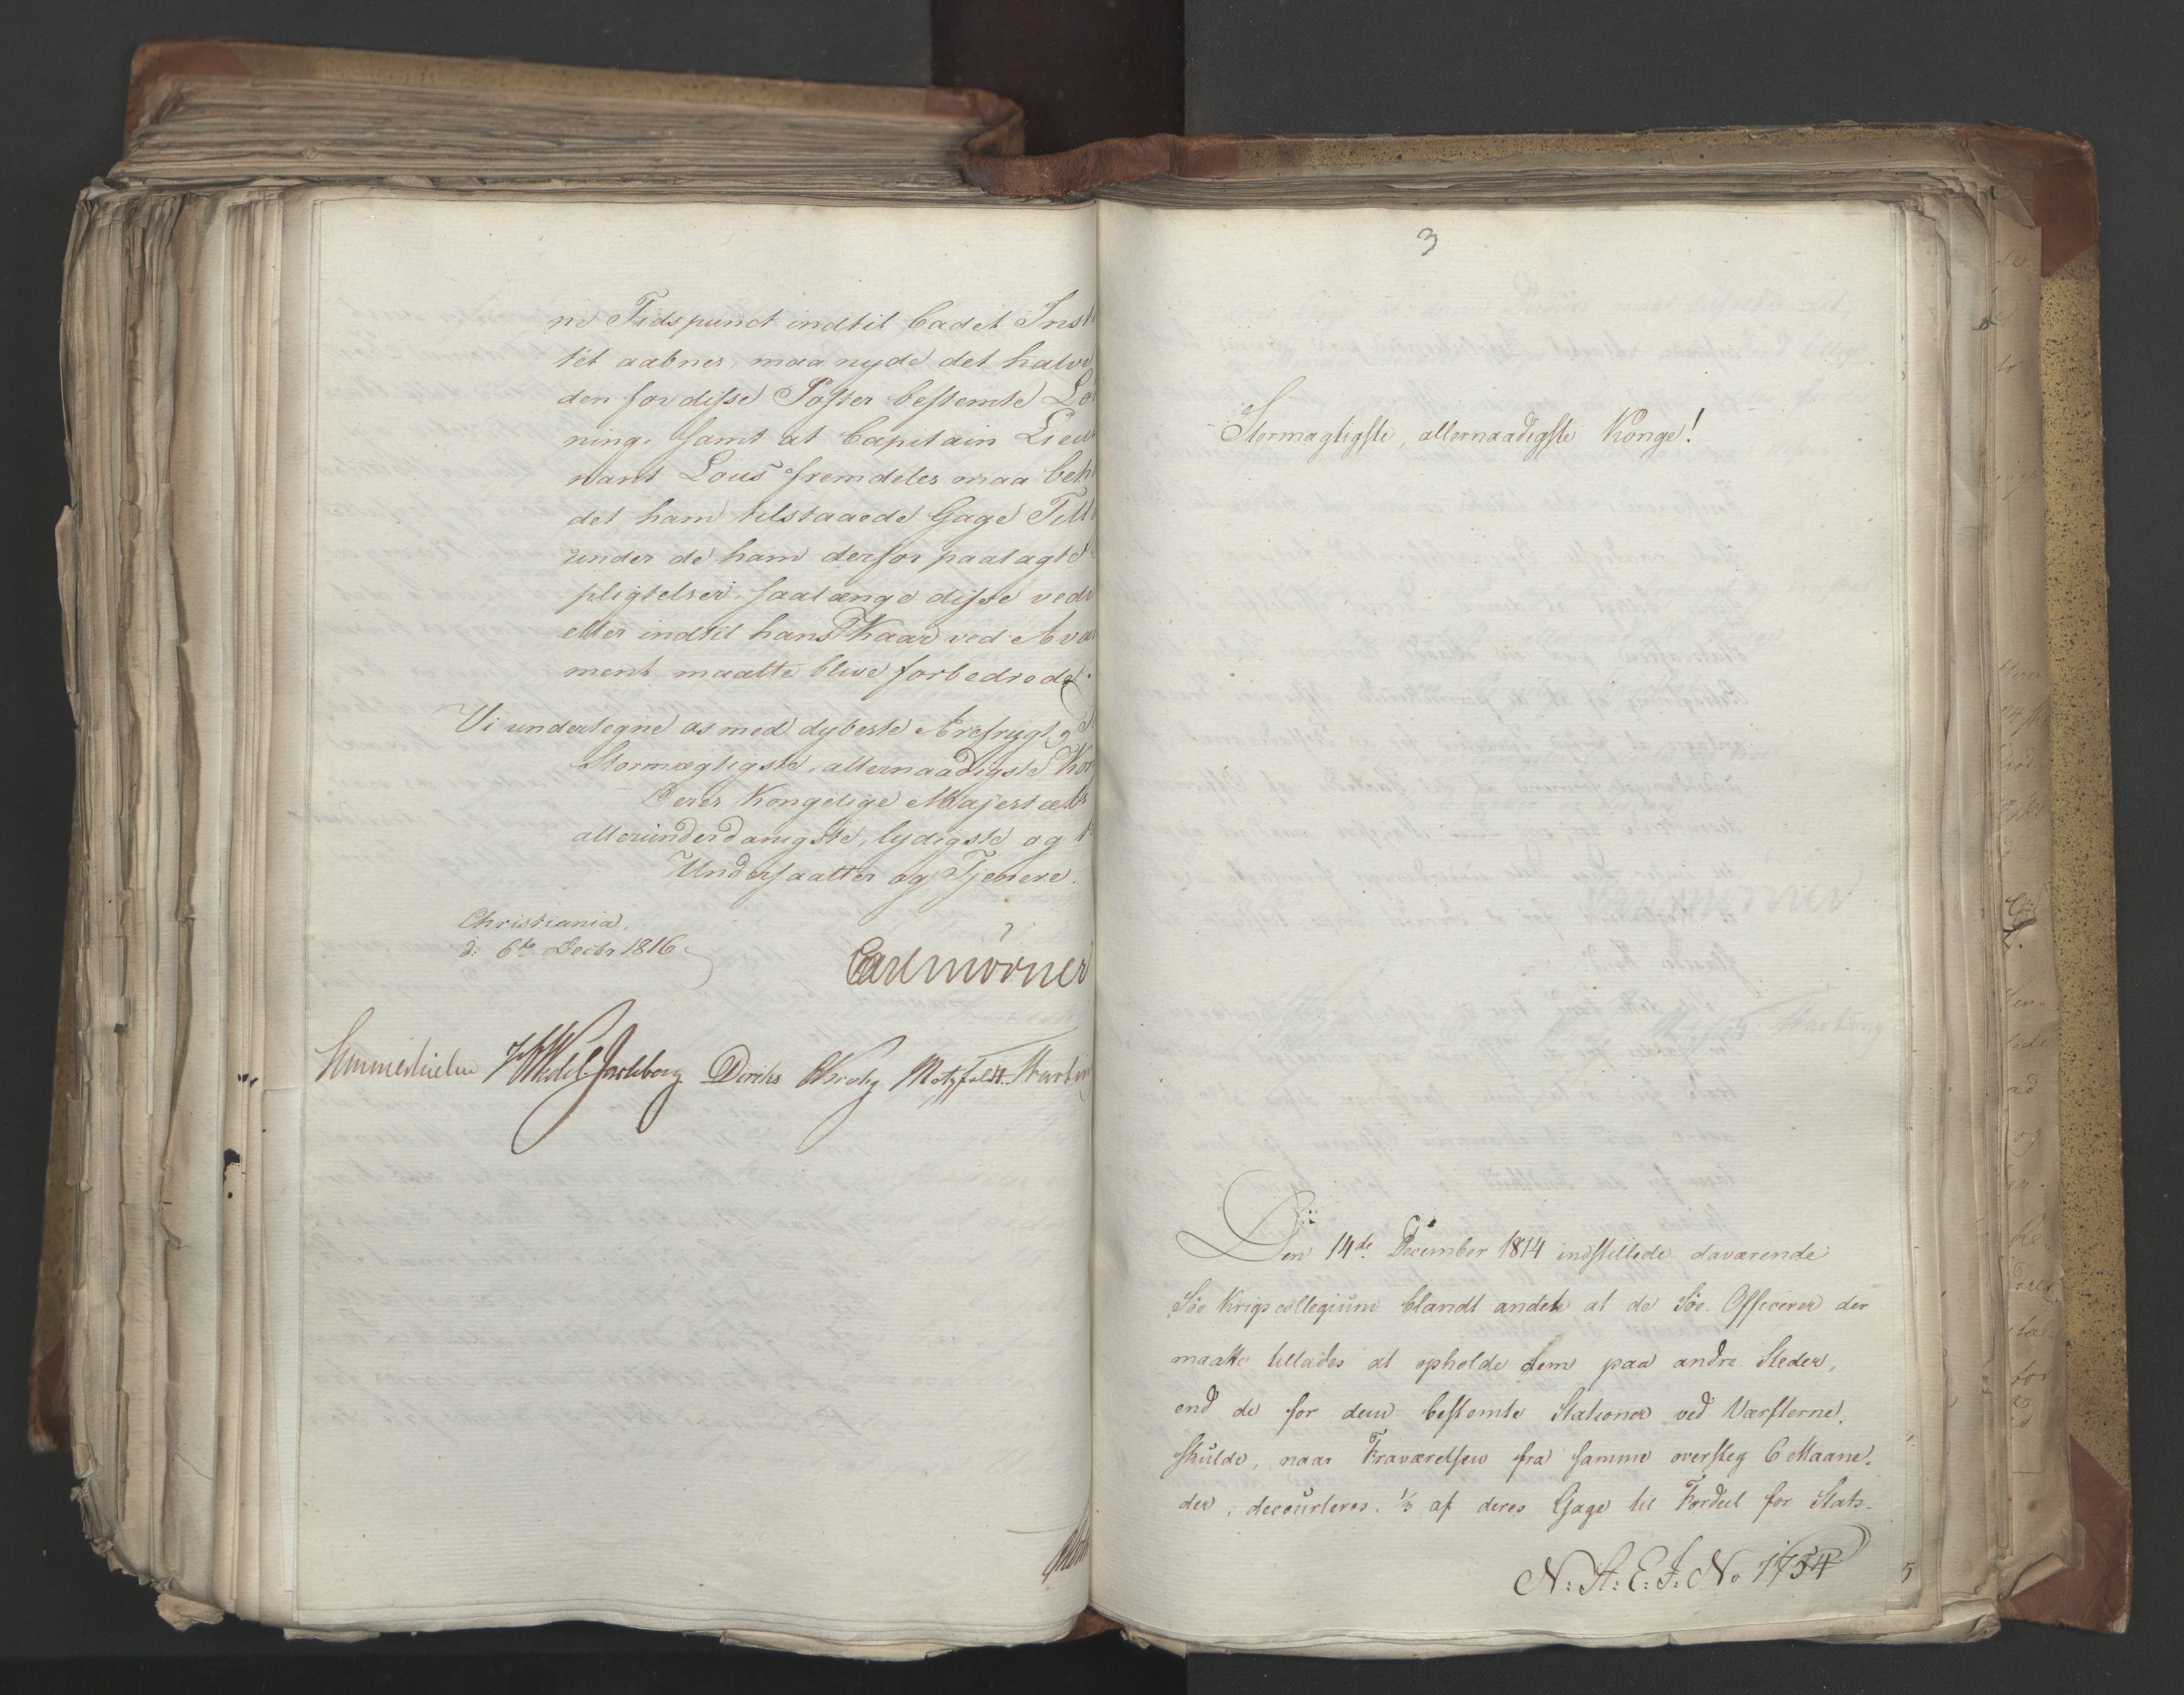 ne Tidspunct indtil Cadet Insti
tet aabnes, maa nyde det halve
den for disse Poster bestemte Lø
ning. Samt at Capitain Lieu
nant Lous fremdeles maa beh
det ham tilstaaede Gage Till
under de ham derfor paalagte
pligtelser, saalænge disse vedv
eller indtil hans Kaar ved Ava
ment maatte blive forbedrede.
Vi undertegne os med dybeste Ærefrygt,
Stormægtigste, allernaadigste Kon
Deres Kongelige Majestæts
allerunderdanigste, lydigste og
Undersaatter og Tjenere.
Christiania,
d: 6te Decbr 1816
Carl Mörner
Sommerhielm HWedel Jarlsberg Diriks Krohg Motzfeldt
3
Stormægtigste, allernaadigste Konge!
Den 14de December 1814 indstillede daværende
Søe Krigscollegium blandt andet at de Søe-Officerer der
maatte tillades at opholde dem paa andre Steder,
end de for dem bestemte Stationer ved Værfterne,
skulde, naar Fraværelsen fra samme oversteg 6 Maane-
der, decourteres 1/3 af deres Gage til Fordeel for Stats-
N: St: E: J: No 1754
5